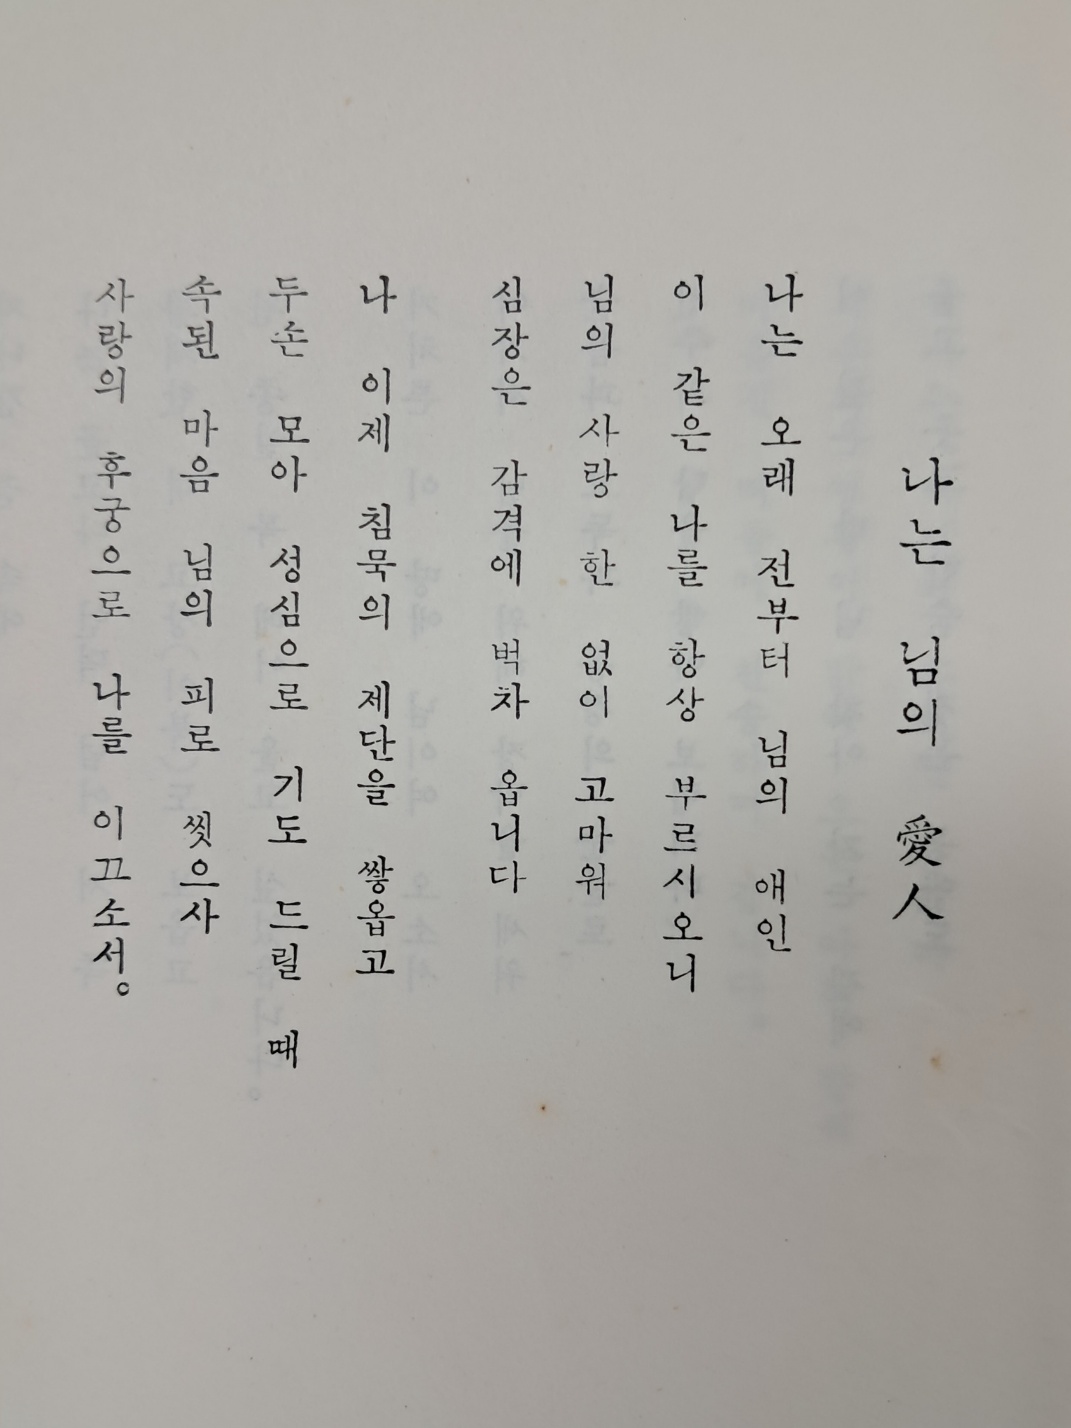 나는 님의 愛人
나는 오래 전부터 님의 애인
이 같은 나를 항상 부르시오니
님의 사랑 한 없이 고마워
심장은 감격에 벅차 옵니다
나 이제 침묵의 제단을 쌓옵고
두손 모아 성심으로 기도 드릴 때
속된 마음 님의 피로 씻으사
사랑의 후궁으로 나를 이끄소서。